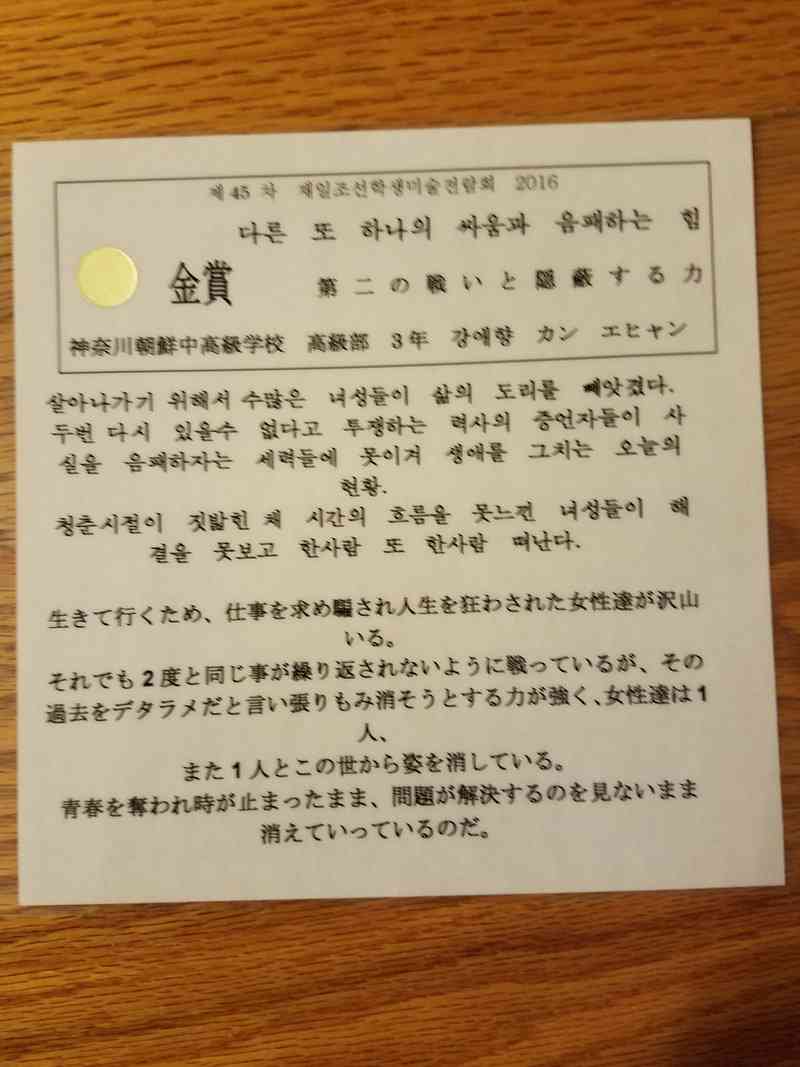 제45차 재일조선학생미술전람회 2016
다른 또 하나의 싸움과 음페하는 힘
金賞 第二の戦いと隠蔽する力
神奈川朝鮮中高級学校 高級部 3年 강애향 カン エヒャン
살아나가기 위해서 수많은 녀성들이 삶의 도리를 빼앗겼다.
두번 다시 있을수 없다고 투쟁하는 력사의 증언자들이 사
실을 음페하자는 세력들에 못이겨 생애를 그치는 오늘의
현황.
청춘시절이 짓밟힌 채 시간의 흐름을 못느낀 녀성들이 해
결을 못보고 한사람 또 한사람 떠난다.
生きて行くため、仕事を求め騙され人生を狂わされた女性達が沢山
いる。
それでも2度と同じ事が繰り返されないように戦っているが、その
過去をデタラメだと言い張りもみ消そうとする力が強く、女性達は1
人、
また1人とこの世から姿を消している。
青春を奪われ時が止まったまま、問題が解決するのを見ないまま
消えていっているのだ。